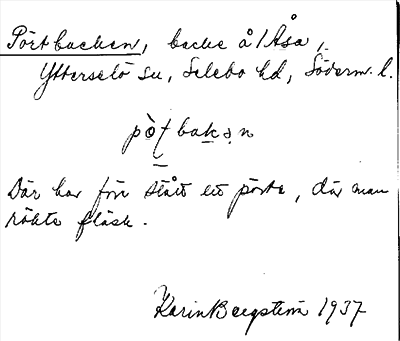 Pörtbacken, backe å/Åsa,
Ytterselö sn, Selebo hd, Söderm. l.
pò̱ṭbakə̣n
Där har förr stått ett pörte, där man
rökte fläsk.
Karin Bergström 1937